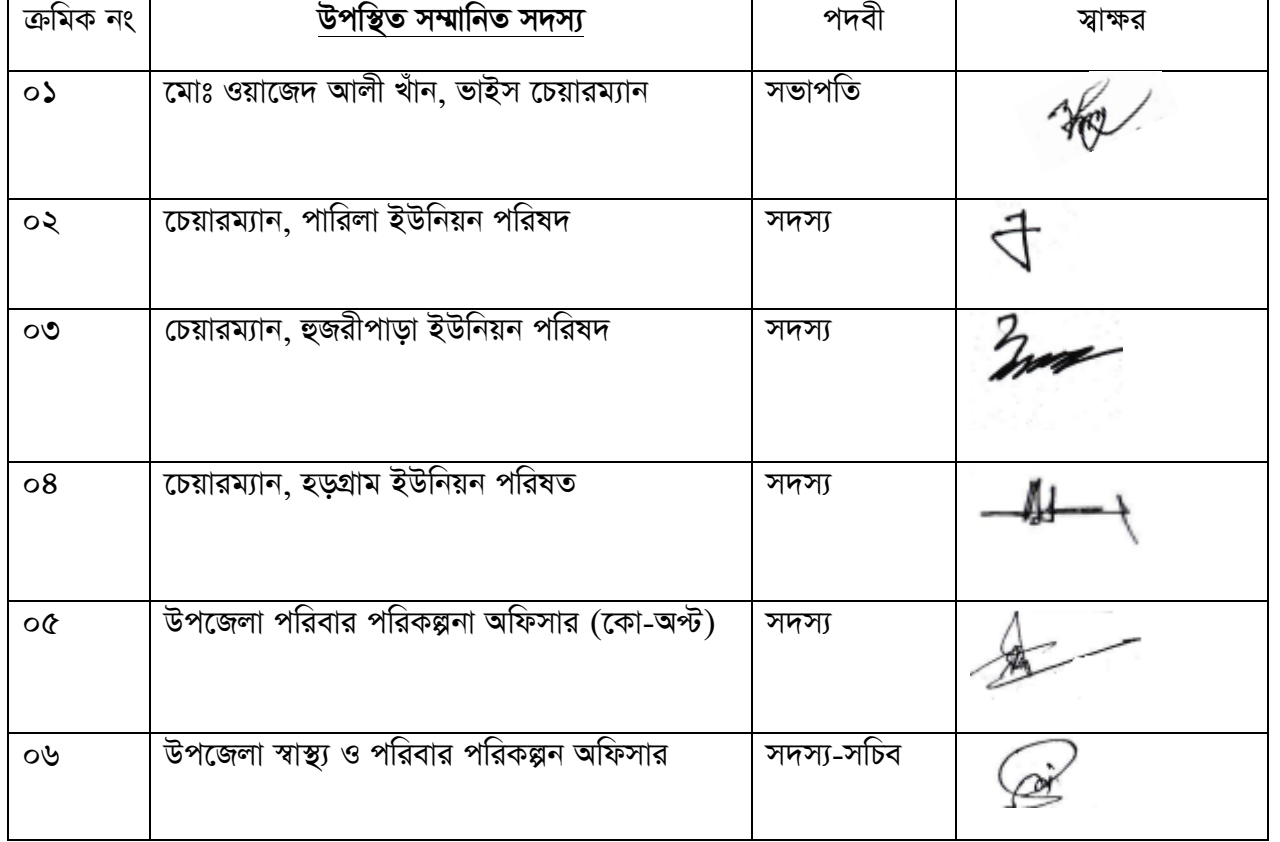 ক্রমিক নং উপস্থিত সম্মানিত সদস্য পদবী স্বাক্ষর
০১ মোঃ ওয়াজেদ আলী খাঁন, ভাইস চেয়ারম্যান সভাপতি
০২ চেয়ারম্যান, পারিলা ইউনিয়ন পরিষদ সদস্য
০৩ চেয়ারম্যান, হুজরীপাড়া ইউনিয়ন পরিষদ সদস্য
০৪ চেয়ারম্যান, হড়গ্রাম ইউনিয়ন পরিষত সদস্য
০৫ উপজেলা পরিবার পরিকল্পনা অফিসার (কো-অপ্ট) সদস্য
০৬ উপজেলা স্বাস্থ্য ও পরিবার পরিকল্পন অফিসার সদস্য-সচিব